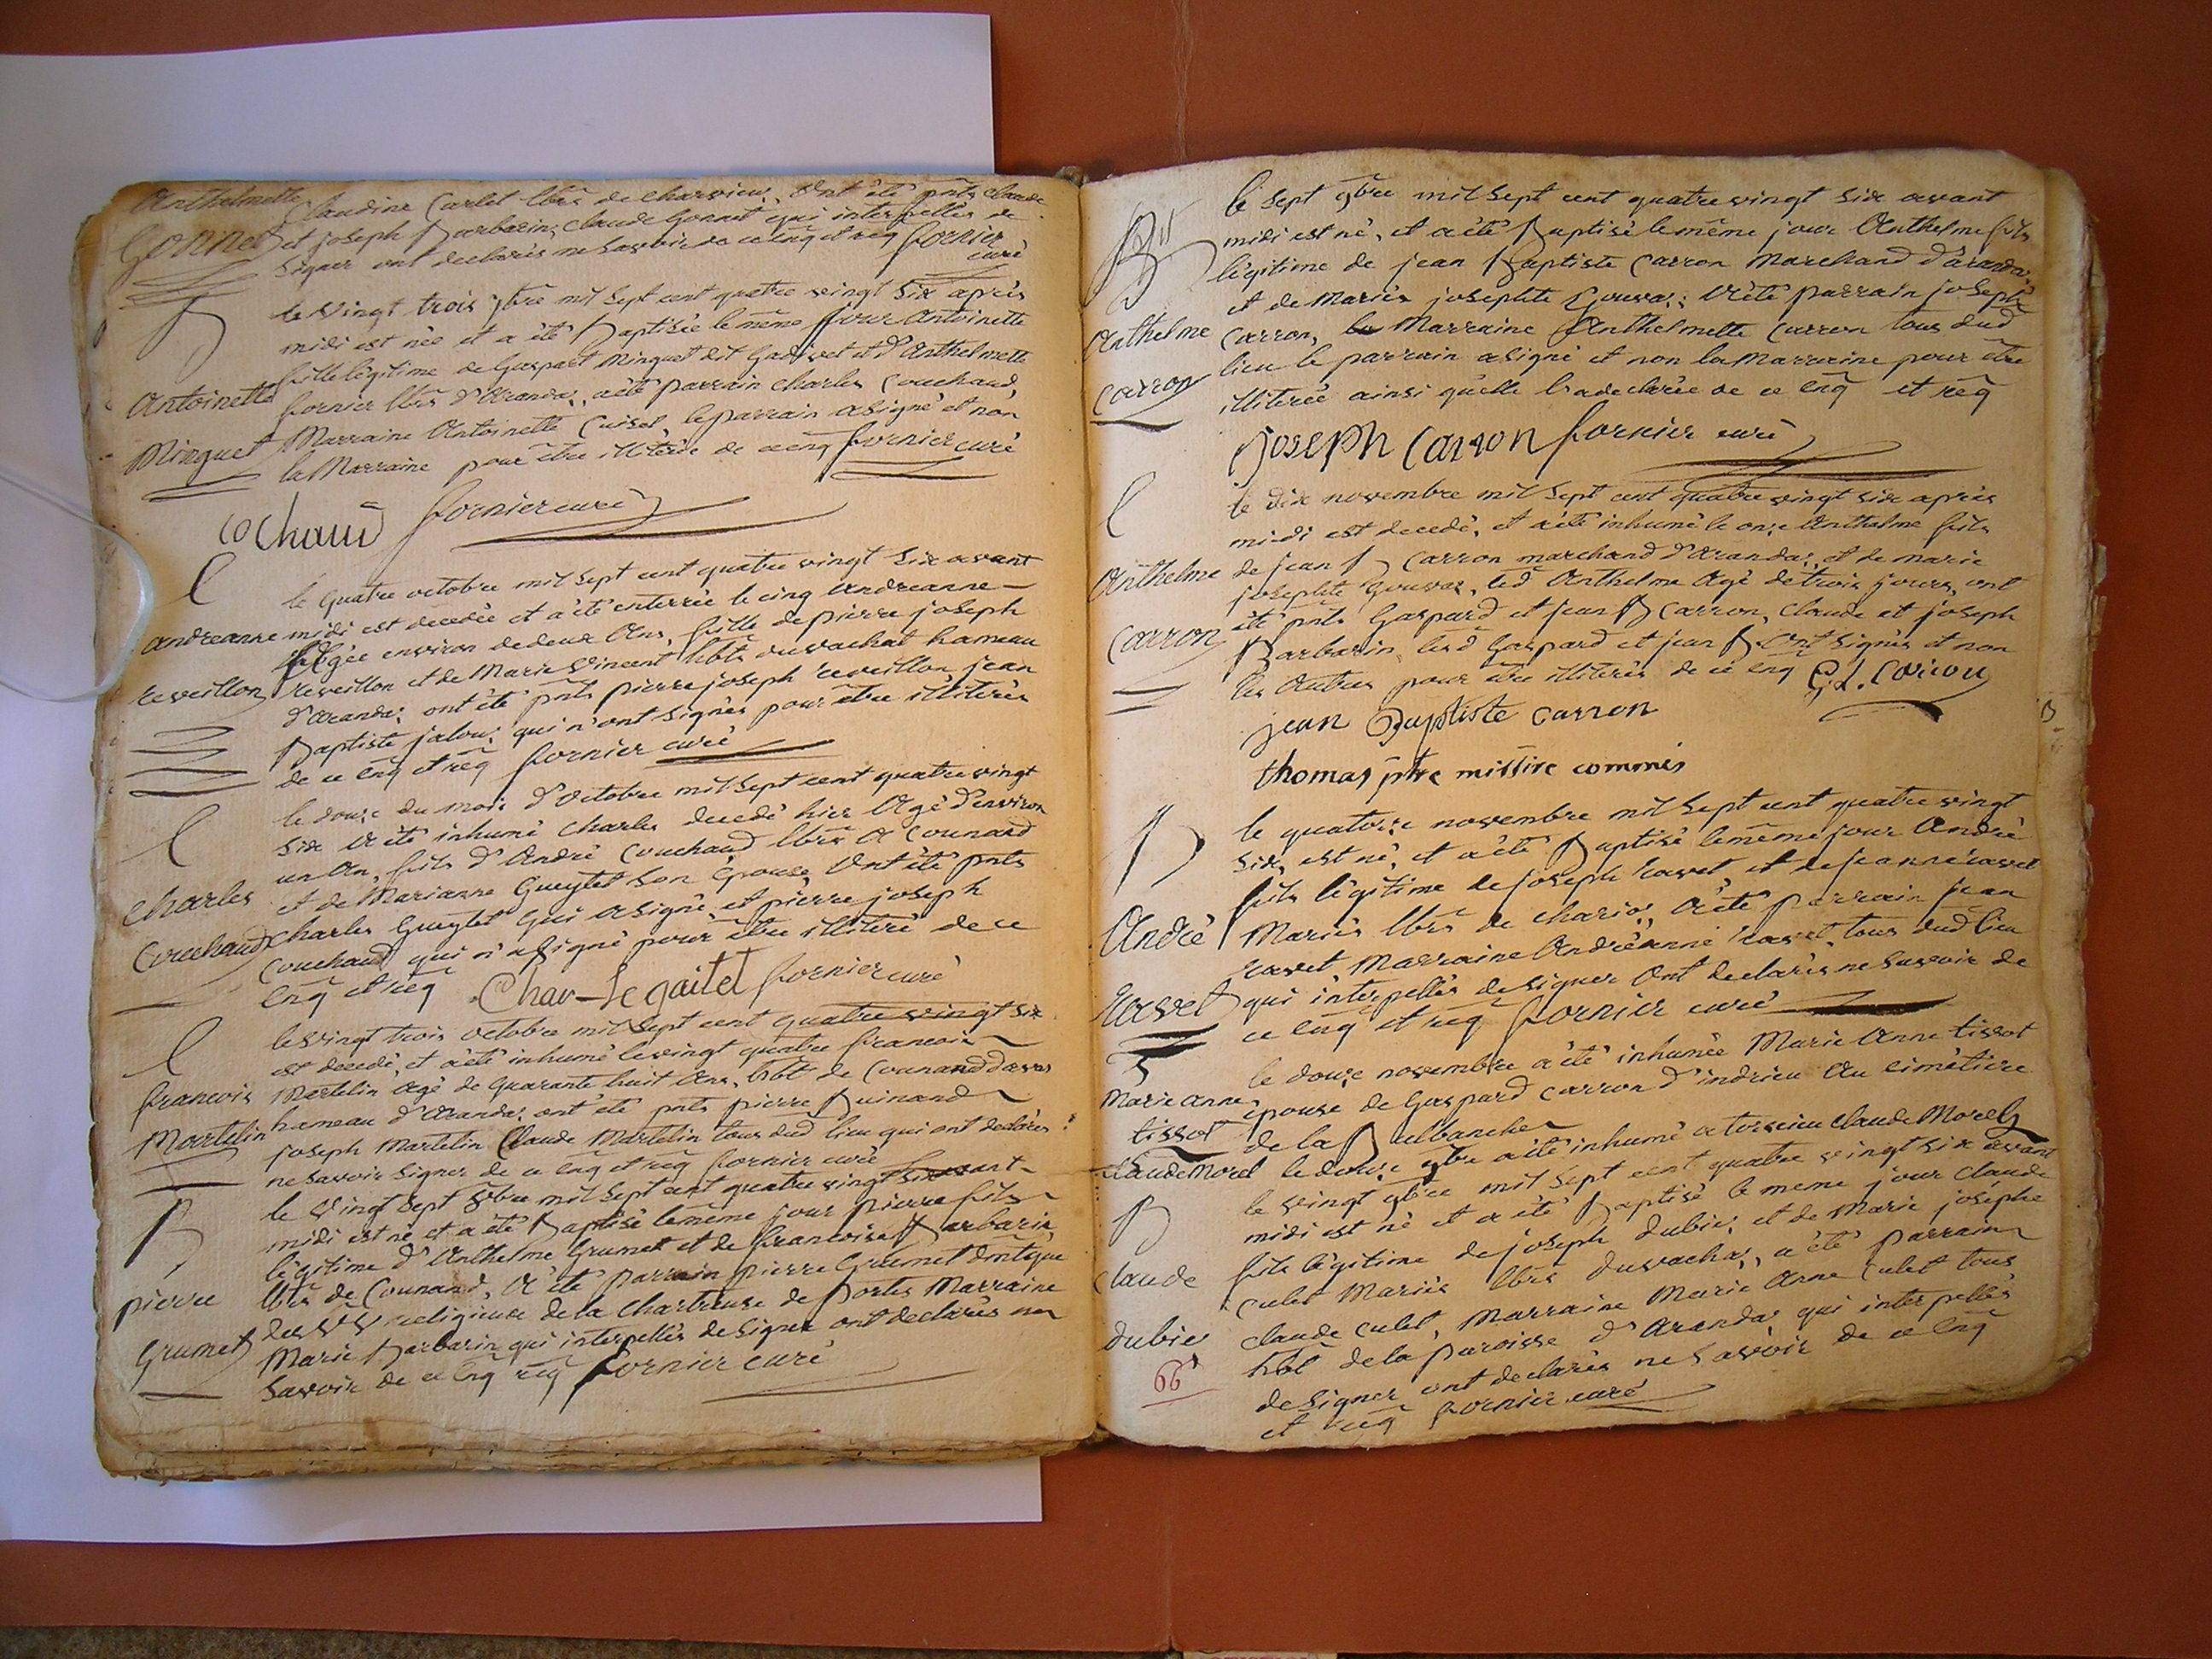 Anthelmette Claudine Carlet lbrs de charvieux, Ont été pnts claude
Gonnet et joseph Barbarin, claude Gonnet qui interpellés de
signer ont declarés ne savoir de ce enq et req fornier
curé
B le vingt trois 7bre mil sept cent quatre vingt six après
midi est née et a été Baptisée le même jour Antoinette
fille légitime de Gaspart Minguet dit Gadivet et d'Anthelmette
Antoinette fornier lbrs d'Arandas, a été parrain charles Couchaud
Marraine Antoinette Cuisel, le parrain a signé et non
Minguet la Marraine pour être illiterée de ce enq fornier curé
Cochaud fornier curé
le quatre octobre mil sept cent quatre vingt six avant
andreanne midi est decedée et a été enterrée le cinq andreanne
Agée environ de deux Ans, fille de pierre joseph
reveillon reveillon et de Marie vincent hbts du vachat hameau
d'arandas ont été pnts pierre joseph reveillon, jean
Baptiste jaloux qui n'ont signés pour être illiterés
de ce enq et req fornier curé
le douze du mois d'octobre mil sept cent quatre vingt
six a été inhumé charles decedé hier Agé d'environ
un An, fils d'André Couchaud lbrs a Counard
charles et de Marianne Gueytet son épouse, Ont été pnts
charles Gueytet qui a signé, et pierre joseph
Couchaud couchaud qui n'a signé pour être illiteré de ce
enq et req Char-le gaitet fornier curé
le vingt trois octobre mil sept cent quatre vingt six
est decedé, et a été inhumé le vingt quatre francois
francois Martelin agé de quarante huit Ans, hbt de Counand
Martelin hameau d'arandas ont été pnts pierre Buinand
joseph Martelin Claude Martelin tous dud lieu qui ont declarés
ne savoir signer de ce enq et req fornier curé
B le vingt sept 8bre mil sept cent quatre vingt six avant
midi est né et a été Baptisé le même jour pierre fils
légitime d'Anthelme Grumet et de francoise Barbarin
pierre lbrs de Counand, A été parrain pierre Grumet
des religieuse de la chartreuse de portes Marraine
Grumet Marie Barbarin qui interpellés de signer ont declarés ne
savoir de ce enq req fornier curé
le sept 9bre mil sept cent quatre vingt six avant
B midi est né, et a été Baptisé le même jour Anthelme fils
légitime de jean Baptiste Carron Marchand d'arandas
et de Mariés josephte Gouvas; A été parrain joseph
Anthelme Carron, Marraine Anthelmette Carron tous dud
lieu le parrain a signé et non la Marraine pour être
carron illiterée ainsi qu'elle l'a declarée de ce enq et req
joseph Carron fornier curé
le dix novembre mil sept cent quatre vingt six après
midi est decedé, et a été inhumé le onze Anthelme fils
Anthelme de jean B Carron marchand d'arandas, et de marie
josephte gouvas, led Anthelme Agé de trois jours, ont
été pnts Gaspard et jean B Carron, Claude et joseph
Carron Barbarin, lesd Gaspard et jean B Ont signés et non
les Autres pour être illiterés de ce enq Gd. Carron
jean Baptiste carron
thomas ptre missire commis
B le quatorze novembre mil sept cent quatre vingt
six, est né, et a été Baptisé le même jour André
fils légitime de joseph ravet, et de jeanne ravet
André Mariés lbrs de chariox, A été parrain jean
ravet, Marraine Andréanne ravet, tous dud lieu
Ravet qui interpellés de signer Ont declarés ne savoir de
ce enq et req fornier curé
le douze novembre a été inhumée Marie Anne tissot
Marie anne épouse de Gaspard Carron d'indrieu Au cimétière
tissot de la Balbanche
Claude Morel le douze 9bre a été inhumé a torcieu Claude Morel
B le vingt 9bre mil sept cent quatre vingt six avant
midi est né et a été Baptisé le meme jour Claude
fils légitime de joseph Dubie; et de Marie josephe
claude culet Mariés lbrs du vachas, a été parrain
claude culet, Marraine Marie Anne Culet tous
dubie hbt de la paroisse d'Arandas qui interpellés
66 de signer ont declarés ne savoir de ce enq
et req fornier curé